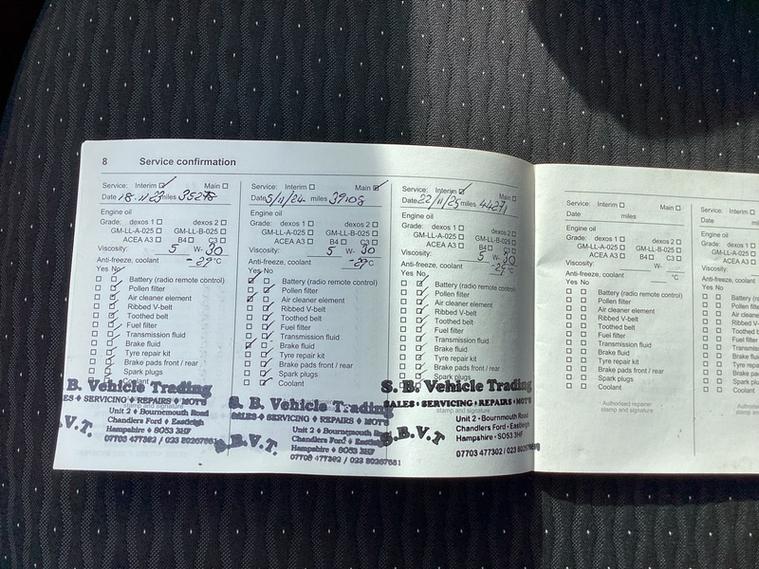 8 Service confirmation
Service: Interim ☑ Main ☐
Date 18.11.23 miles 35278
Engine oil
Grade: dexos 1 ☐ dexos 2 ☐
GM-LL-A-025 ☐ GM-LL-B-025 ☐
ACEA A3 ☐ B4 ☐ C3 ☐
Viscosity: 5 W- 30
Anti-freeze, coolant -29 °C
Yes No
Battery (radio remote control)
Pollen filter
Air cleaner element
Ribbed V-belt
Toothed belt
Fuel filter
Transmission fluid
Brake fluid
Tyre repair kit
Brake pads front / rear
Spark plugs
B. Vehicle Trading
ES ♦ SERVICING ♦ REPAIRS ♦ MOT'S
Unit 2 ♦ Bournemouth Road
Chandlers Ford ♦ Eastleigh
Hampshire ♦ SO53 3HF
07703 477302 / 023 80267681
.V.T.
Service: Interim ☐ Main ☑
Date 5/11/24 miles 39108
Engine oil
Grade: dexos 1 ☐ dexos 2 ☐
GM-LL-A-025 ☐ GM-LL-B-025 ☐
ACEA A3 ☐ B4 ☐ C3 ☐
Viscosity: 5 W- 30
Anti-freeze, coolant -29°C
Yes No
Battery (radio remote control)
Pollen filter
Air cleaner element
Ribbed V-belt
Toothed belt
Fuel filter
Transmission fluid
Brake fluid
Tyre repair kit
Brake pads front / rear
Spark plugs
Coolant
S. B. Vehicle Trading
SALES ♦ SERVICING ♦ REPAIRS ♦ MOT'S
Unit 2 ♦ Bournemouth Road
Chandlers Ford ♦ Eastleigh
Hampshire ♦ SO53 3HF
07703 477302 / 023 80267681
S.B.V.T.
Service: Interim ☑ Main ☐
Date 22/11/25 miles 44271
Engine oil
Grade: dexos 1 ☐ dexos 2 ☐
GM-LL-A-025 ☐ GM-LL-B-025 ☐
ACEA A3 ☐ B4 ☐ C3 ☐
Viscosity: 5 W- 30
Anti-freeze, coolant -29°C
Yes No
Battery (radio remote control)
Pollen filter
Air cleaner element
Ribbed V-belt
Toothed belt
Fuel filter
Transmission fluid
Brake fluid
Tyre repair kit
Brake pads front / rear
Spark plugs
S. B. Vehicle Trading
SALES • SERVICING • REPAIRS • MOT'S
stamp and signature
Unit 2 • Bournmouth Road
Chandlers Ford • Eastleigh
Hampshire • SO53 3HF
07703 477302 / 023
S.B.V.T
Service: Interim ☐ Main ☐
Date miles
Engine oil
Grade: dexos 1 ☐ dexos 2 ☐
GM-LL-A-025 ☐ GM-LL-B-025 ☐
ACEA A3 ☐ B4 ☐ C3 ☐
Viscosity: W-
Anti-freeze, coolant °C
Yes No
Battery (radio remote control)
Pollen filter
Air cleaner element
Ribbed V-belt
Toothed belt
Fuel filter
Transmission fluid
Brake fluid
Tyre repair kit
Brake pads front / rear
Spark plugs
Coolant
Authorised repairer
stamp and signature
Service: Interim
Date
Engine oil
Grade: dexos 1
GM-LL-A-025
ACEA A3
Viscosity:
Anti-freeze, coolant
Yes No
Battery (
Pollen filter
Air cleaner
Ribbed V-
Toothed
Fuel filter
Transmis
Brake flui
Tyre repa
Brake pad
Spark plu
Coolant